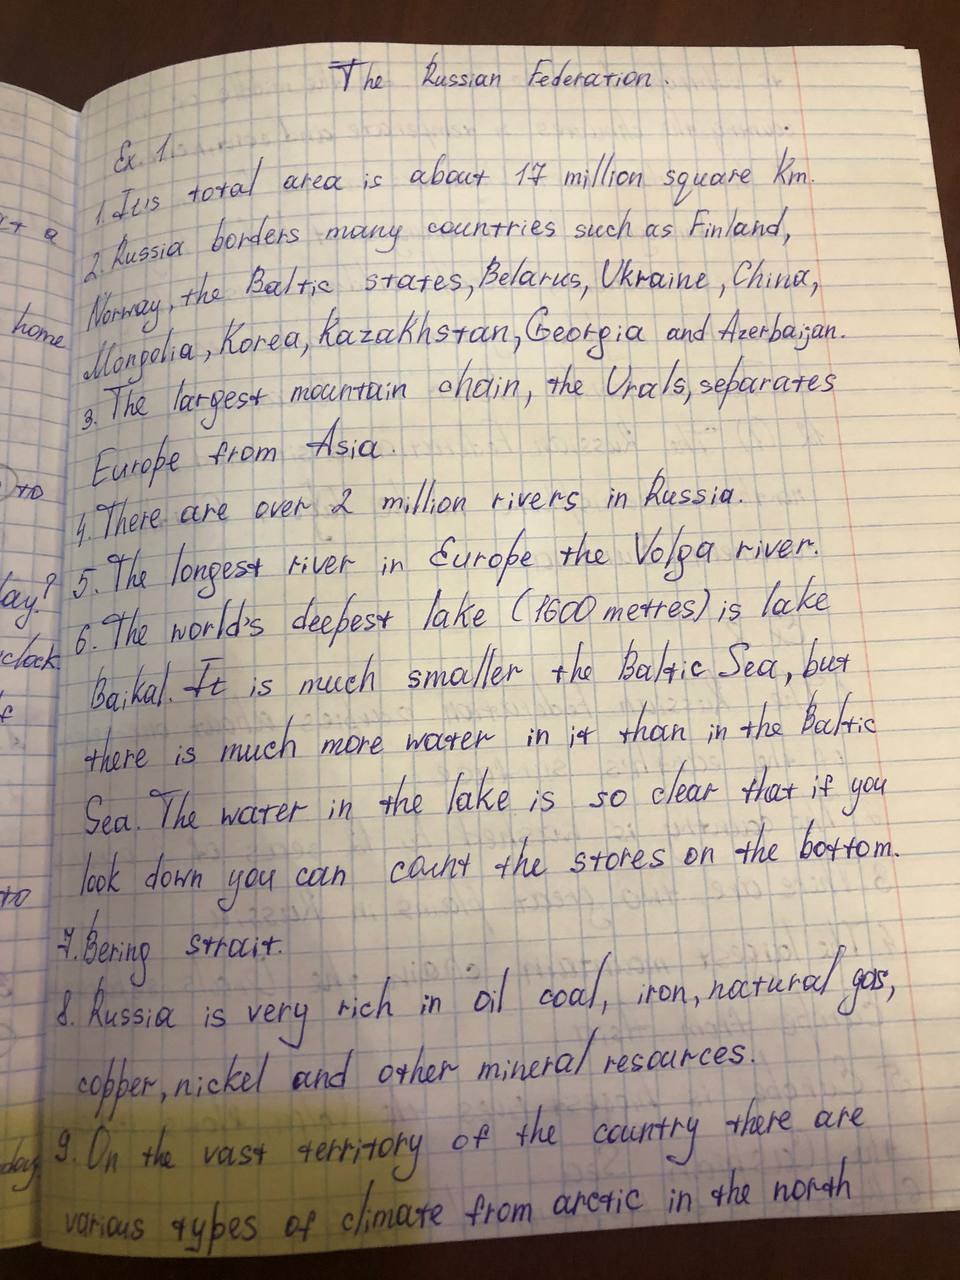 The Russian Federation.
Ex. 1.
1. Itis total area is about 17 million square km.
2. Russia borders many countries such as Finland,
Norway, the Baltic states, Belarus, Ukraine, China,
Mongolia, Korea, Kazakhstan, Georgia and Azerbaijan.
3. The largest mountain chain, the Urals, separates
Europe from Asia.
4. There are over 2 million rivers in Russia.
5. The longest river in Europe the Volga river.
6. The world's deepest lake (1600 metres) is lake
Baikal. It is much smaller the Baltic Sea, but
there is much more water in it than in the Baltic
Sea. The water in the lake is so clear that if you
look down you can count the stores on the bottom.
7. Bering strait.
8. Russia is very rich in oil coal, iron, natural gas,
copper, nickel and other mineral resources.
9. On the vast territory of the country there are
various types of climate from arctic in the north
home
to
clock
to